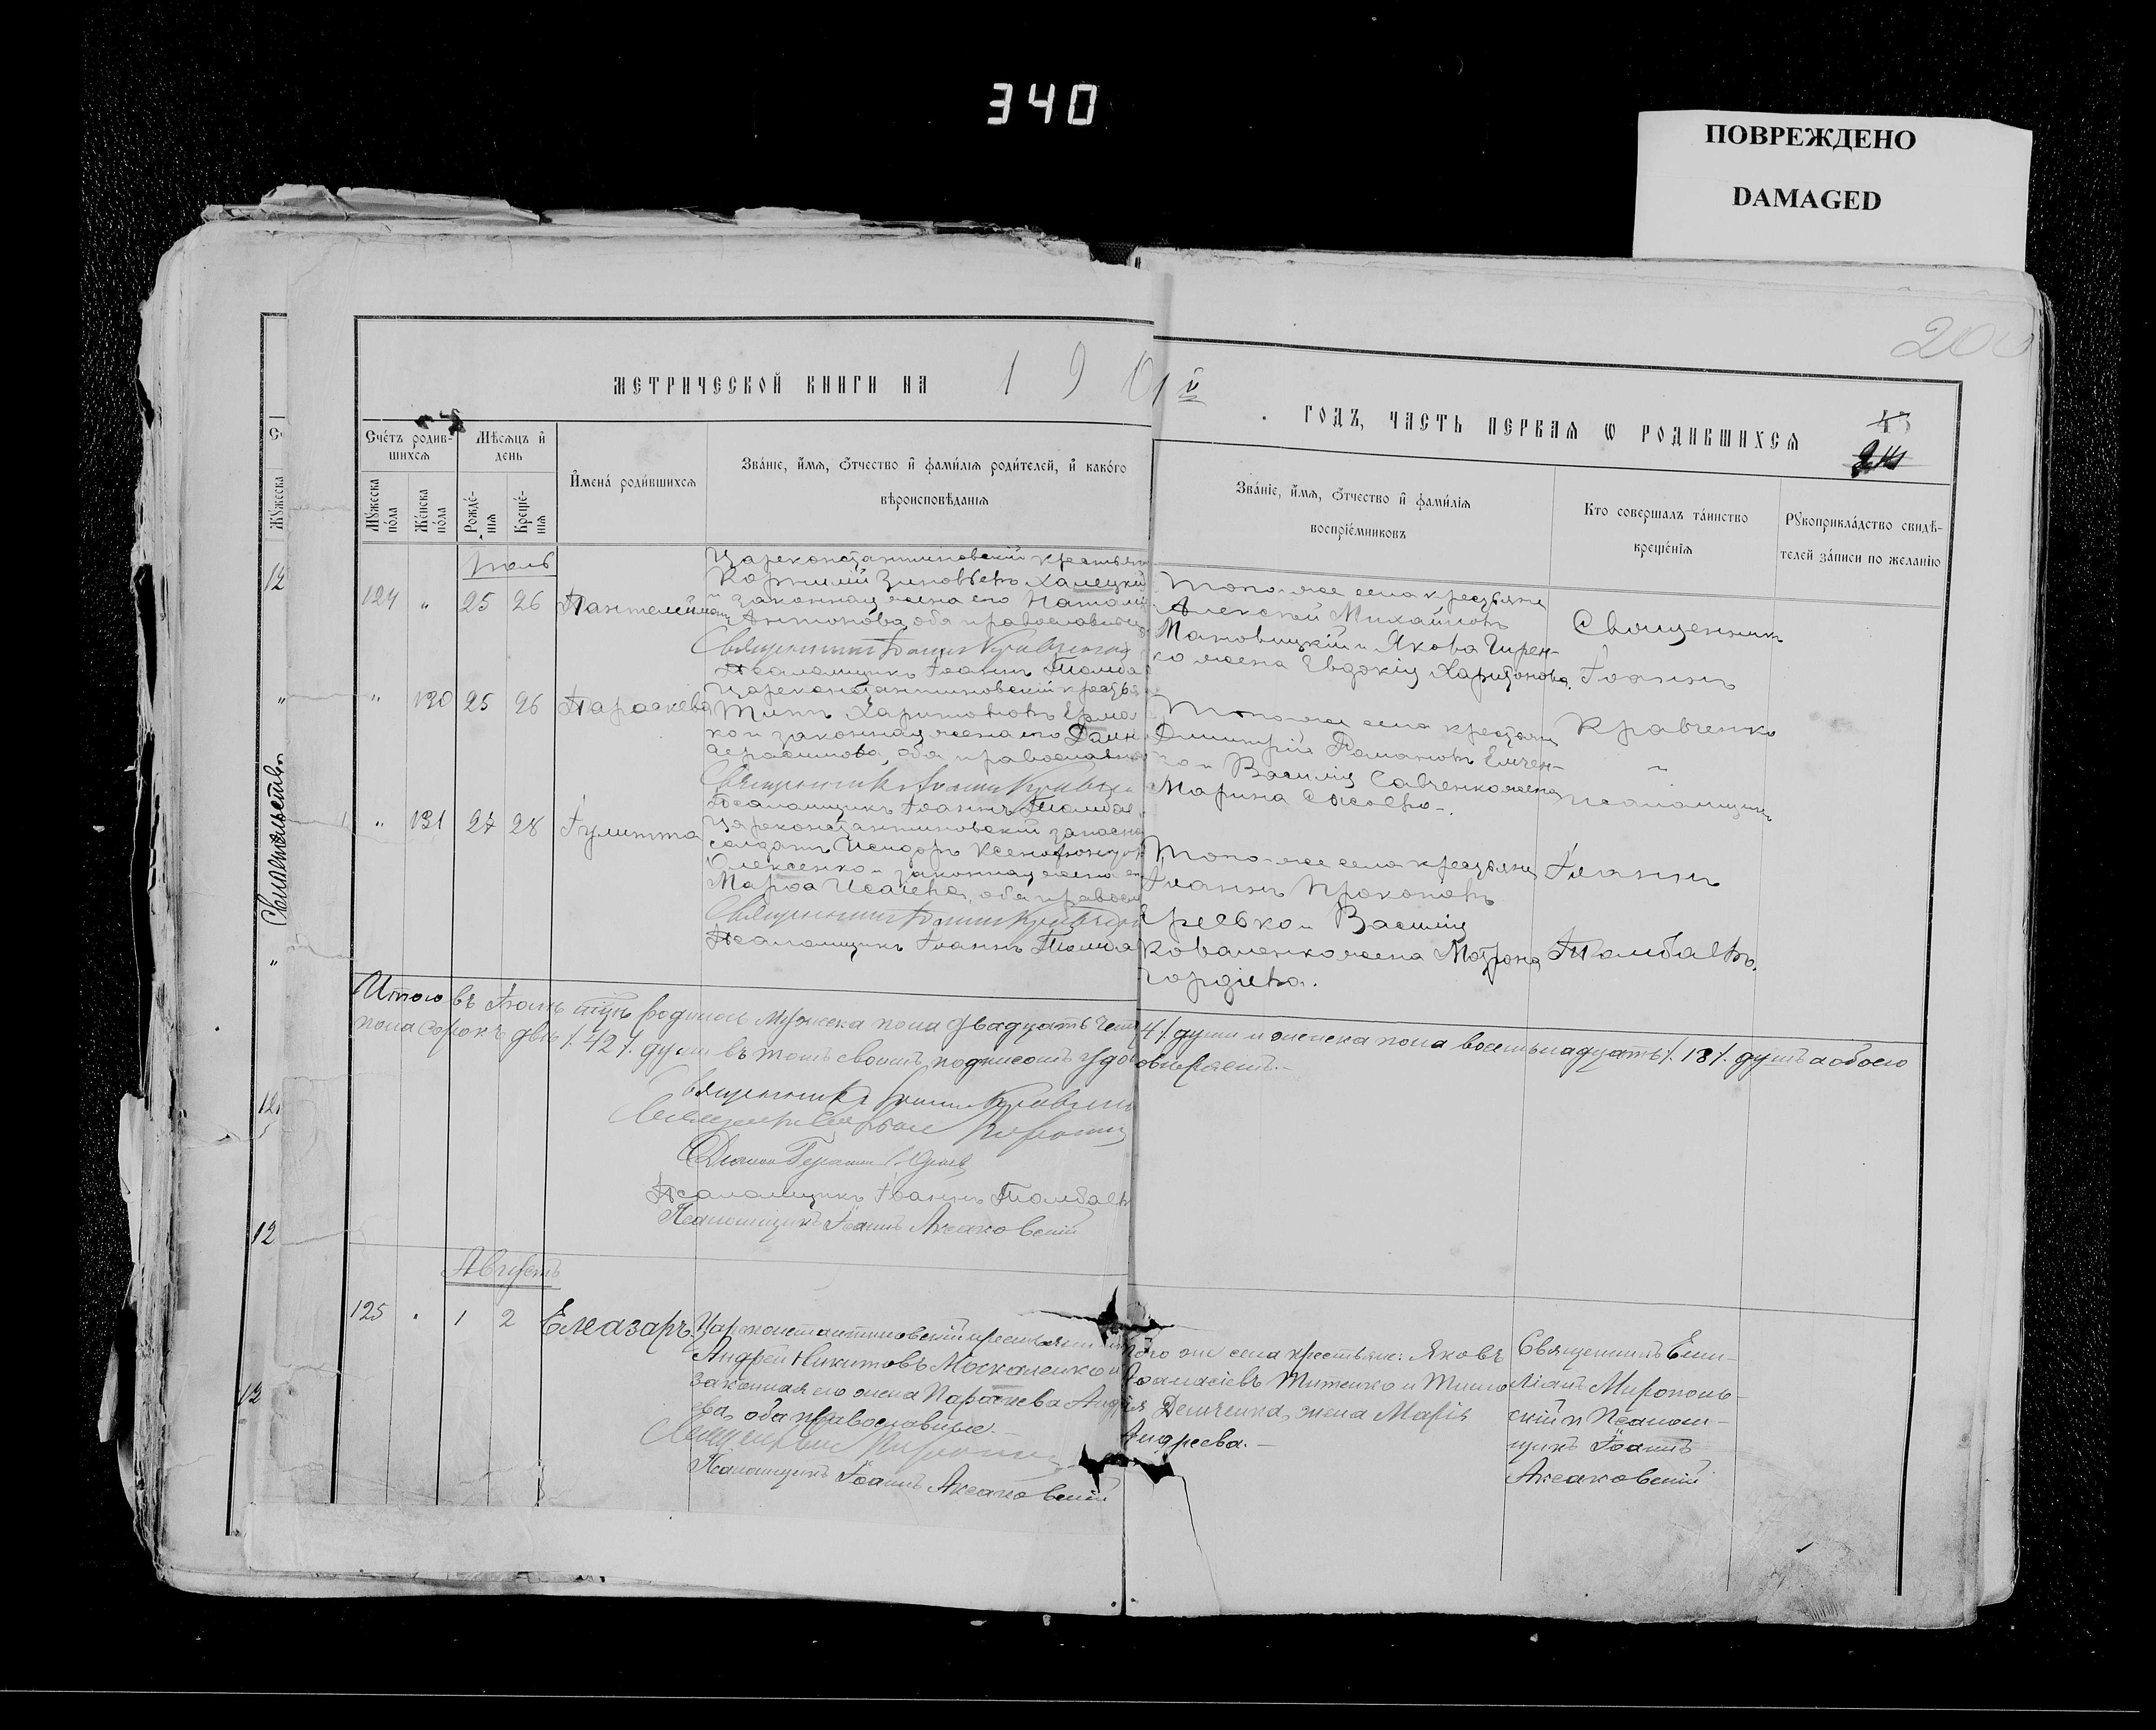 340
ПОВРЕЖДЕНО
DAMAGED
200
МЕТРИЧЕСКОЙ КНИГИ НА 1901й ГОДЪ, ЧАСТЬ ПЕРВАЯ Ѡ РОДИВШИХСЯ
Счетъ родив-
шихся
Мѣсяцъ и
день
Мужеска
пола
Женска
пола
Рожде-
нія
Креще-
нія
Имена родившихся
Званіе, имя, отчество и фамилія родителей, и какого
вѣроисповѣданія
Званіе, имя, отчество и фамилія
воспріемниковъ
Кто совершалъ таинство
крещенія
Рукоприкладство свидѣ-
телей записи по желанію
Свидетельство
Іюль
124 " 25 26 Пантелеймонъ
Цареконстантиновскій крестьян
Корнилій Зиновьевъ Халецкій
и законная жена его Наталі
Антонова, оба православные
Священникъ Іоаннъ Кравченко
Псаломщикъ Іоаннъ Толмба
Того-же села крестьяне
Алексей Михайловъ
Мановицкій и Якова Гирен-
ко жена Евдокія Харитонова.
Священникъ
Іоаннъ
Кравченко
и
Псаломщикъ
Іоаннъ
Толмбаевъ.
" 130 25 26 Параскева
Цареконстантиновскій крестья
Титъ Харитоновъ Ермо
ко и законная жена его
Герасимова, оба православно
Священникъ Іоаннъ Кравчен
Псаломщикъ Іоаннъ Толмбае
Того-же села крестьяне
Димитрій Романовъ Емчен-
ко и Василія Савченко жена
Марина
" 131 27 28 Іулитта
Цареконстантиновскій запасны
солдатъ Исидоръ Ксенофонтов
Олексенко и законная жена ег
Марфа Исаіева, оба правосл
Священникъ Іоаннъ Кравчен
Псаломщикъ Іоаннъ Толмба
Того-же села крестьяне
Іоаннъ Прокоповъ
Еребко и Василія
Коваленко жена Матрона
Гордіева.
Итого въ Іюлѣ родилось мужеска пола двадцать четы 4/ души и женска пола восемьнадцать /.18/. душъ а обоего
пола сорокъ двѣ /.42/. души въ томъ своимъ подписомъ удостовѣряемъ.-
Священникъ Іоаннъ Кравченко
Діаконъ
Псаломщикъ Іоаннъ Толмбаевъ
Псаломщикъ Іоаннъ Аксаковскій
Августъ
125 " 1 2 Елеазаръ
Цареконстантиновскій крестьянинъ
Андрей Никитовъ Москаленко и
законная его жена Параскева Анд
ева, оба православные.-
Псаломщикъ Іоаннъ Аксаковскій
Того же села крестьяне: Яковъ
Аѳанасіевъ Титенко и Тимо
Демченка, жена Марія
Андреева.-
Священникъ Еми-
ліанъ Мирополь-
скій и Псалом-
щикъ Іоаннъ
Аксаковскій